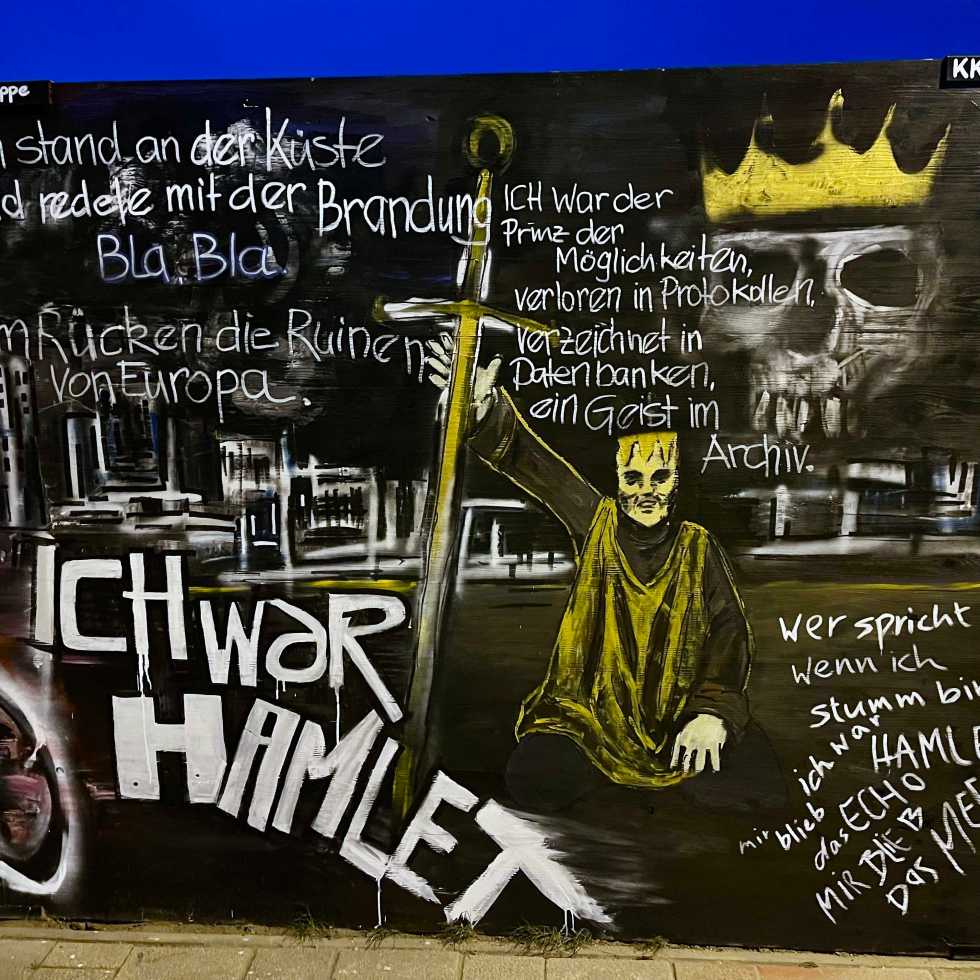 ppe
KK
stand an der Küste
d redete mit der Brandung
Bla, Bla.
m Rücken die Ruinen
von Europa.
ICH war der
Prinz der
Möglichkeiten,
verloren in Protokollen,
verzeichnet in
Datenbanken,
ein Geist im
Archiv.
ICH waR
HAMLET
wer spricht
wenn ich
stumm bi
ich war HAMLE
mir blieb das ECHO
MIR BLIEB
DAS ME